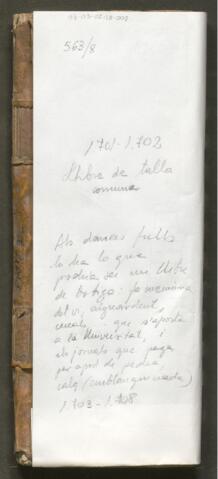 563/8
1701-1702
Llibre de talla
comuna
Als darrers fulls
hi ha lo que
podria ser un llibre
de botiga: fa menció
del vi, aiguardent,
cereals que s'aporta
a la Universitat, i
els jornals que paga
per de pedra,
calç (emblanquinada)
1703-1708